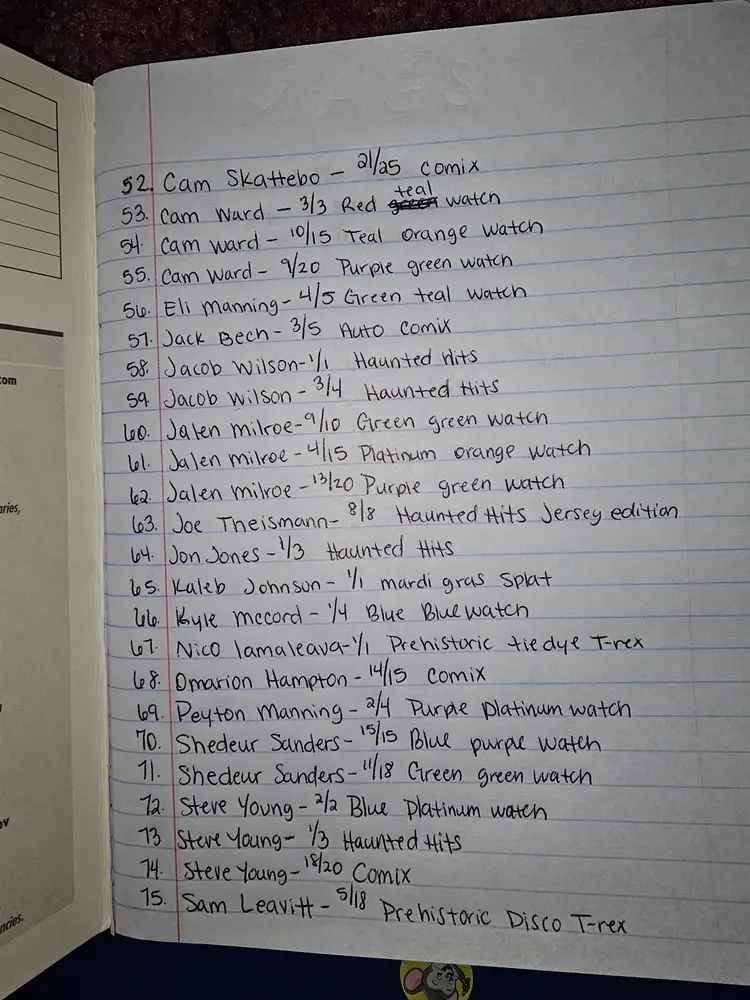 52. Cam Skattebo - 21/25 comix
53. Cam Ward - 3/3 Red teal watch
54. Cam ward - 10/15 Teal orange watch
55. Cam Ward - 9/20 Purple green watch
56. Eli Manning - 4/5 Green teal watch
57. Jack Bech - 3/5 Auto Comix
58. Jacob Wilson - 1/1 Haunted Hits
59 Jacob Wilson - 3/4 Haunted Hits
60. Jalen milroe - 9/10 Green green watch
61. Jalen milroe - 4/15 Platinum orange watch
62. Jalen milroe - 13/20 Purple green watch
63. Joe Theismann - 8/8 Haunted Hits Jersey edition
64. Jon Jones - 1/3 Haunted Hits
65. Kaleb Johnson - 1/1 mardi gras Splat
66. Kyle mccord - 1/4 Blue Blue watch
67. Nico Iamaleava - 1/1 Prehistoric tie dye T-rex
68. Omarion Hampton - 14/15 Comix
69. Peyton Manning - 2/4 Purple platinum watch
70. Shedeur Sanders - 15/15 Blue purple watch
71. Shedeur Sanders - 11/18 Green green watch
72. Steve Young - 2/2 Blue Platinum watch
73 Steve Young - 1/3 Haunted Hits
74. Steve Young - 18/20 Comix
75. Sam Leavitt - 5/18 Prehistoric Disco T-rex
com
aries,
ov
ncies.